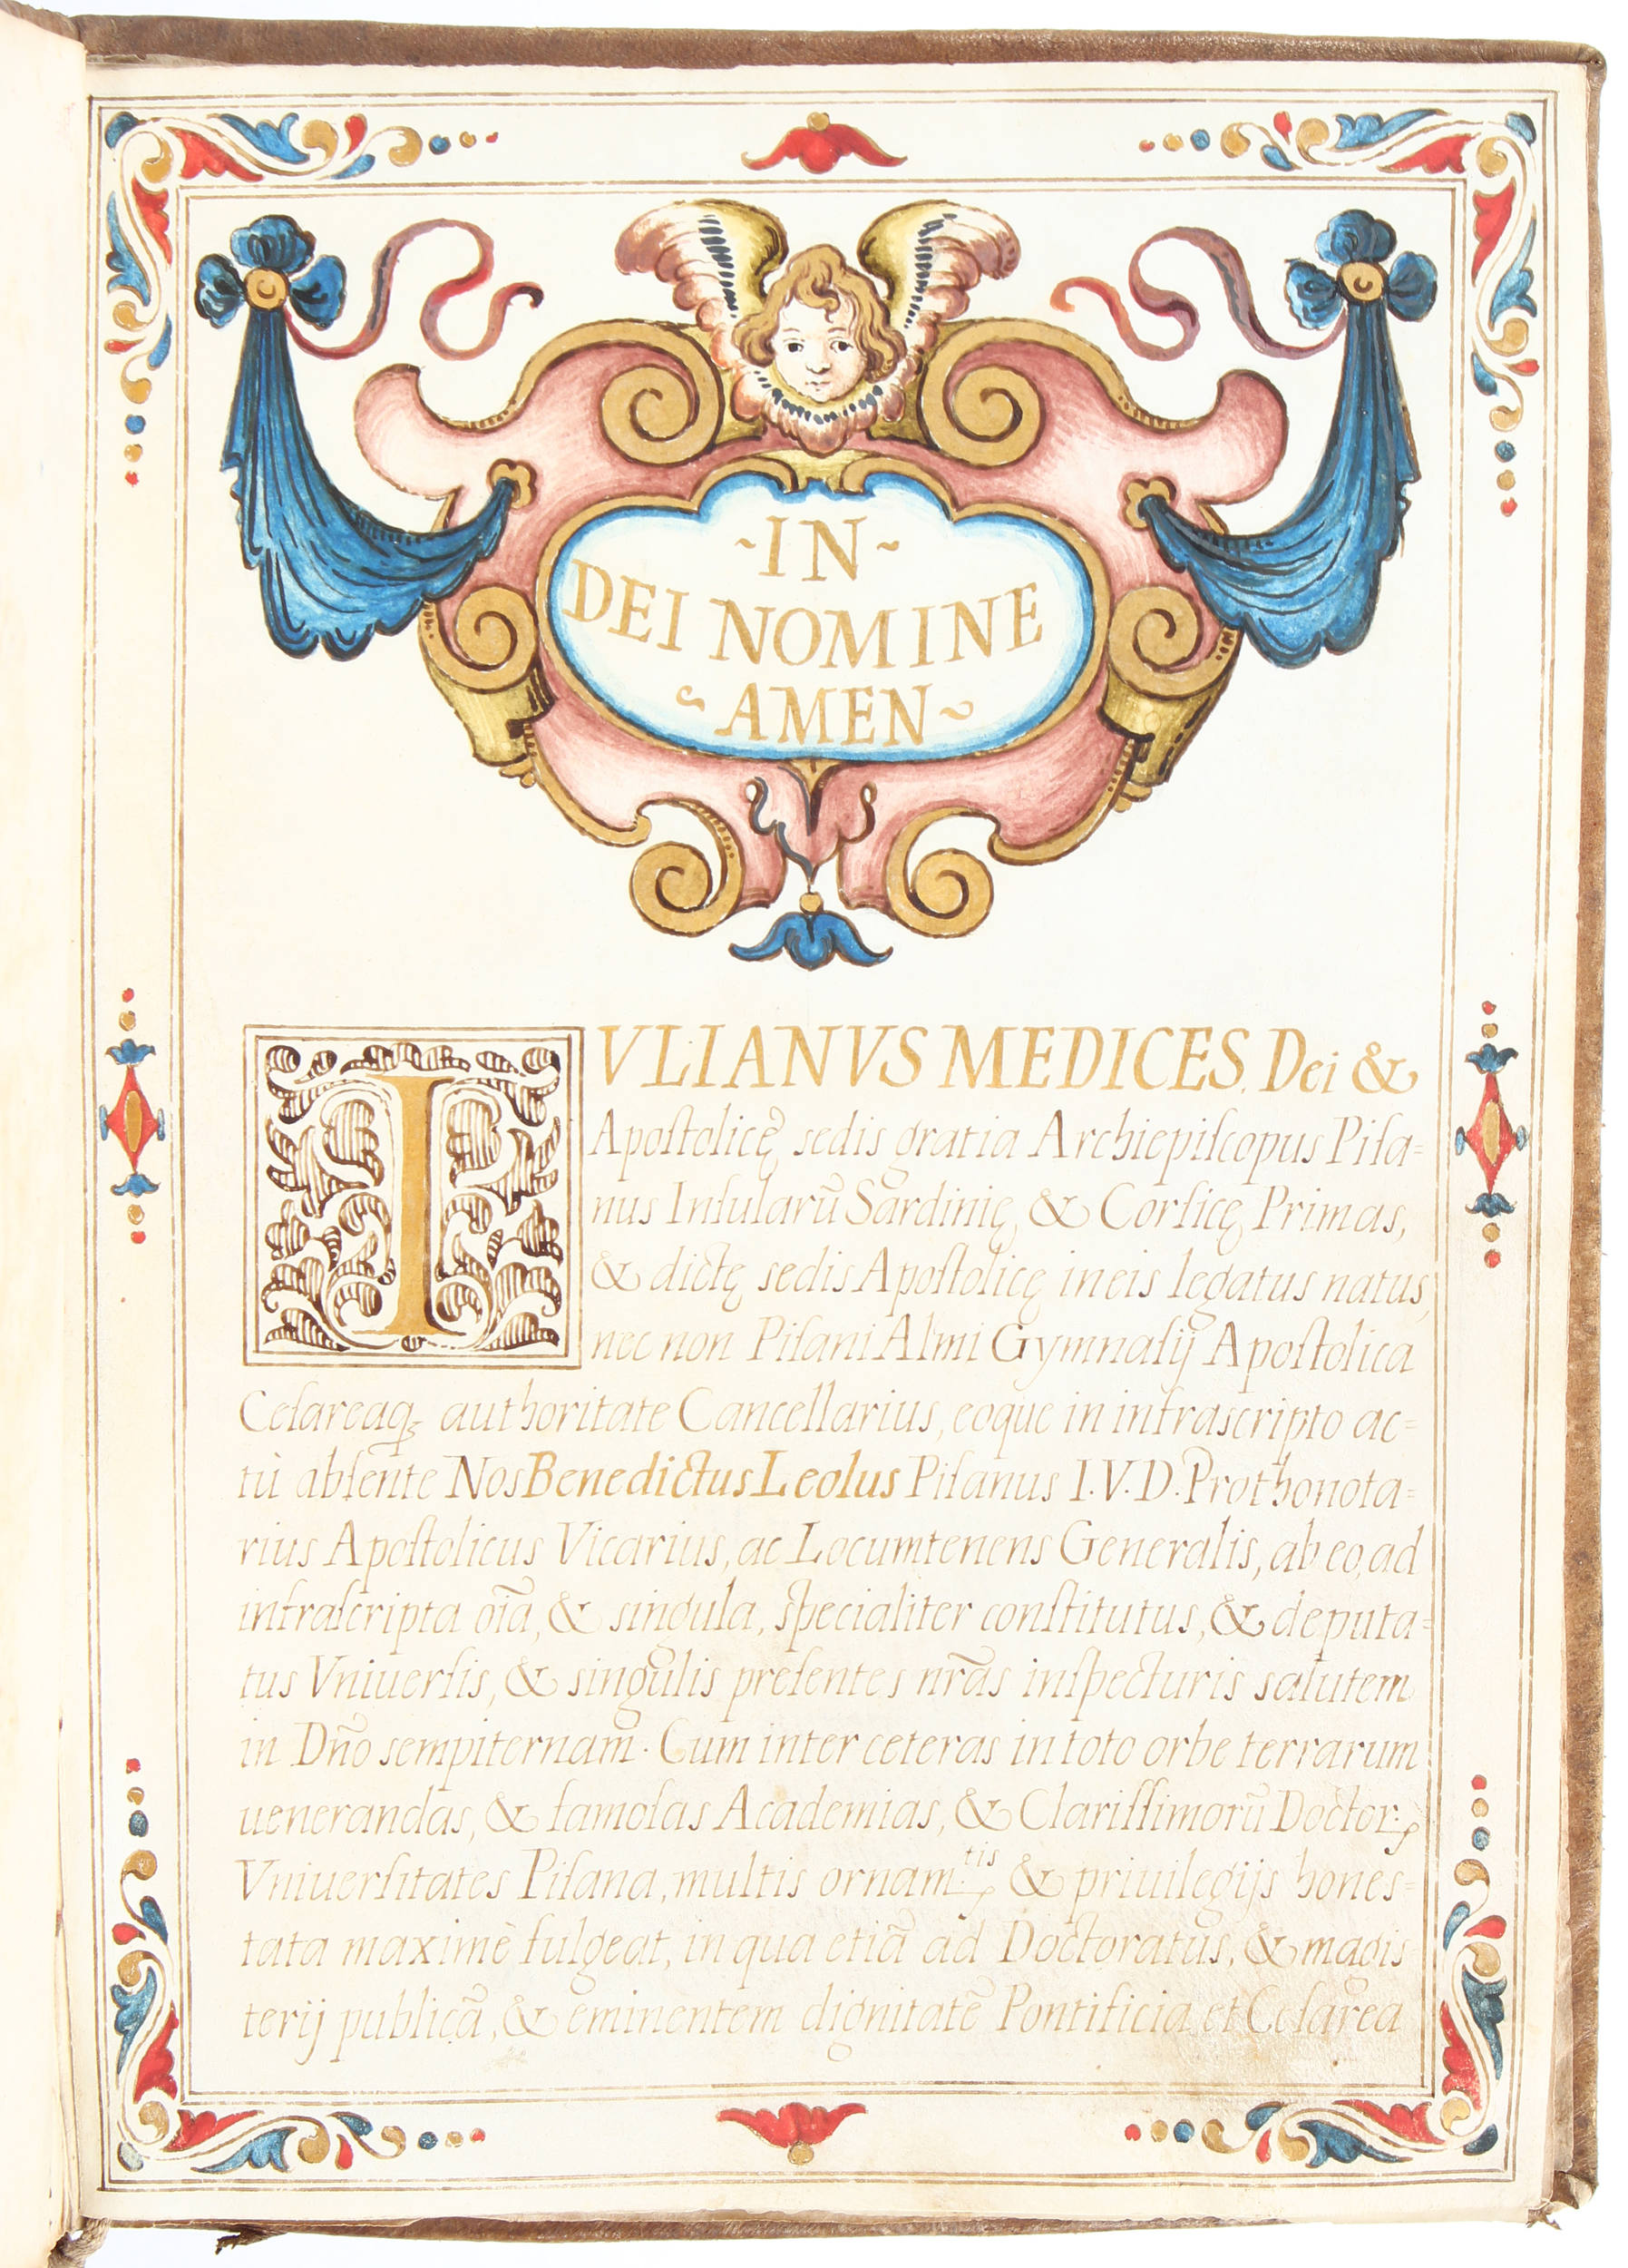 ~IN~
DEI NOMINE
~AMEN~
IVLIANVS MEDICES. Dei &
Apoſtolicę sedis gratia Archiepiſcopus Piſa=
nus Inſularũ Sardinię, & Corſicę Primas,
& dictę sedis Apoſtolicę in eis legatus natus,
nec non Piſani Almi Gymnaſij Apoſtolica
Ceſareaqꝫ authoritate Cancellarius, eoque in infrascripto ac=
tù abſente Nos Benedictus Leolus Piſanus I.V.D. Prothonota=
rius Apoſtolicus Vicarius, ac Locumtenens Generalis, ab eo, ad
infraſcripta oĩa, & singula, specialiter conſtitutus, & deputa=
tus Vniuerſis, & singulis preſentes nr̃as inſpecturis salutem
in Dn̄o sempiternam. Cum inter ceteras in toto orbe terrarum
uenerandas, & famoſas Academias, & Clariſſimorũ Doctor:
Vniuerſitates Piſana, multis ornam:tis & priuilegijs hones=
tata maximè fulgeat, in qua etiã ad Doctoratus, & magis
terij publicã, & eminentem dignitatẽ Pontificia et Ceſarea